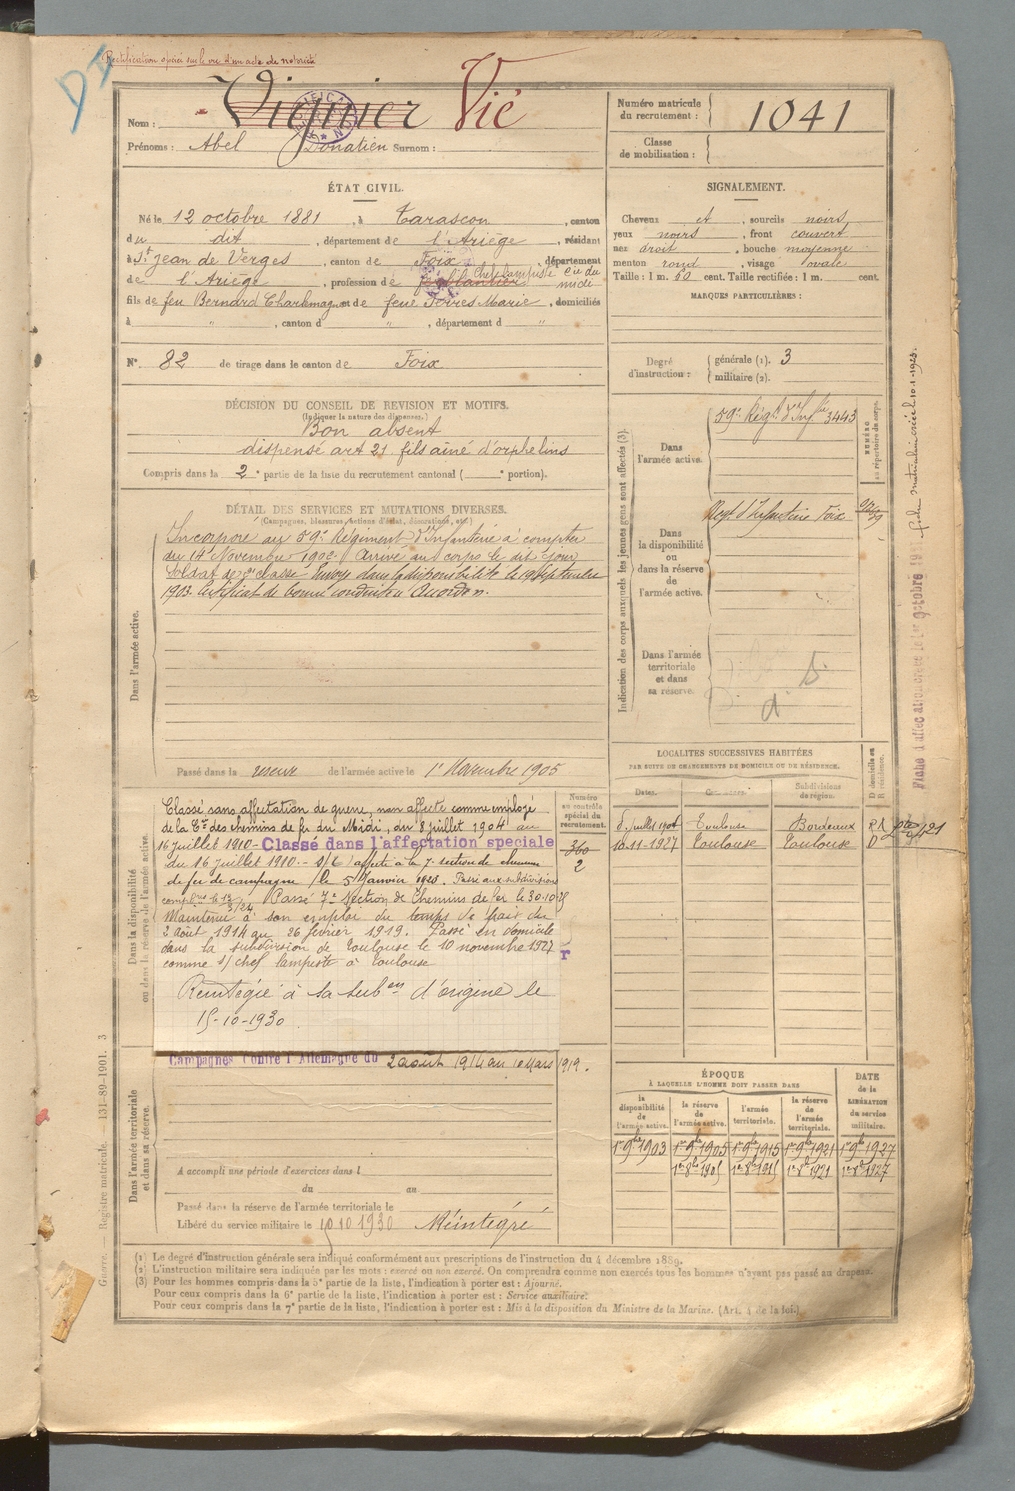 Rectification opérée sur le vu d'un acte de notoriété
Nom : Viguier Vié
Prénoms : Abel Donatien Surnom :
Numéro matricule du recrutement : 1041
Classe de mobilisation :
ÉTAT CIVIL.
Né le 12 octobre 1881, à Tarascon, canton
du dit, département de l'Ariège, résidant
à St Jean de Verges, canton de Foix, département
de l'Ariège, profession de ferblantier Chef lampiste Cie du midi
fils de feu Bernard Charlemagne et de feue Torres Marie, domiciliés
à " , canton d " , département d "
N° 82 de tirage dans le canton de Foix
SIGNALEMENT.
Cheveux et, sourcils noirs
yeux noirs, front couvert
nez droit, bouche moyenne
menton rond, visage ovale
Taille : 1 m. cent. Taille rectifiée : 1 m. cent.
MARQUES PARTICULIÈRES :
Degré d'instruction : générale (1). 3
militaire (2).
DÉCISION DU CONSEIL DE REVISION ET MOTIFS.
(Indiquer la nature des dispenses.)
Bon absent
dispensé art 21 fils aîné d'orphelins
Compris dans la 2e partie de la liste du recrutement cantonal ( e portion).
DÉTAIL DES SERVICES ET MUTATIONS DIVERSES.
(Campagnes, blessures, actions d'éclat, décorations, etc.)
Dans l'armée active.
Incorporé au 59e Régiment d'Infanterie à compter
du 14 Novembre 1902 Arrivé au corps le dit jour
Soldat de 2e classe Envoyé dans la disponibilité le 19 Septembre
1903. Certificat de bonne conduite « Accordé ».
Passé dans la réserve de l'armée active le 1er Novembre 1905
Indication des corps auxquels les jeunes gens sont affectés (3).
Dans l'armée active.
59e Régt d'Infie 3443
NUMÉRO au répertoire du corps.
Dans la disponibilité ou dans la réserve de l'armée active.
Regt d'Infanterie Foix
Dans l'armée territoriale et dans sa réserve.
Fiche matricule créée le 10.1.1923.
Dans la disponibilité ou dans la réserve de l'armée active.
Classé sans affectation de guerre, non affecté comme employé
de la Cie des chemins de fer du Midi, du 8 juillet 1904 au
16 juillet 1910 - Classé dans l'affectation spéciale
du 16 juillet 1910. - affecté à la 7e section de chemins
de fer de campagne le 5 Janvier 1923. Passé aux subdivisions
Passé 7e Section de Chemins de fer le 30.10.
Maintenu à son emploi du temps de paix du
2 août 1914 au 26 février 1919. Passé en domicile
dans la subdivision de Toulouse le 10 novembre 1927
comme s/ chef lampiste à Toulouse
Réintégré à sa subon d'origine le
15-10-1930
Numéro au contrôle spécial du recrutement.
360
2
LOCALITÉS SUCCESSIVES HABITÉES
PAR SUITE DE CHANGEMENTS DE DOMICILE OU DE RÉSIDENCE.
Dates. Communes. Subdivisions de région. D domicile ou R résidence.
8 Juillet 1904 Toulouse Bordeaux R
10-11-1927 Toulouse Toulouse D
Campagnes Contre l'Allemagne du 2 août 1914 au 10 Mars 1919.
Dans l'armée territoriale et dans sa réserve.
A accompli une période d'exercices dans l
du au
Passé dans la réserve de l'armée territoriale le
Libéré du service militaire le 15 10 1930 Réintégré
ÉPOQUE
À LAQUELLE L'HOMME DOIT PASSER DANS
la disponibilité de l'armée active. la réserve de l'armée active. l'armée territoriale. la réserve de l'armée territoriale.
DATE de la LIBÉRATION du service militaire.
1er 9bre 1903 1er 9bre 1905 1er 9bre 1915 1er 9bre 1921 1er 9bre 1927
1er 8bre 1905 1er 8bre 1915 1er 8bre 1921 1er 8bre 1927
(1) Le degré d'instruction générale sera indiqué conformément aux prescriptions de l'instruction du 4 décembre 1889.
(2) L'instruction militaire sera indiquée par les mots : exercé ou non exercé. On comprendra comme non exercés tous les hommes n'ayant pas passé au drapeau.
(3) Pour les hommes compris dans la 5e partie de la liste, l'indication à porter est : Ajourné.
Pour ceux compris dans la 6e partie de la liste, l'indication à porter est : Service auxiliaire.
Pour ceux compris dans la 7e partie de la liste, l'indication à porter est : Mis à la disposition du Ministre de la Marine. (Art. 4 de la loi.)
Guerre. — Registre matricule. — 131-89-1901. 3